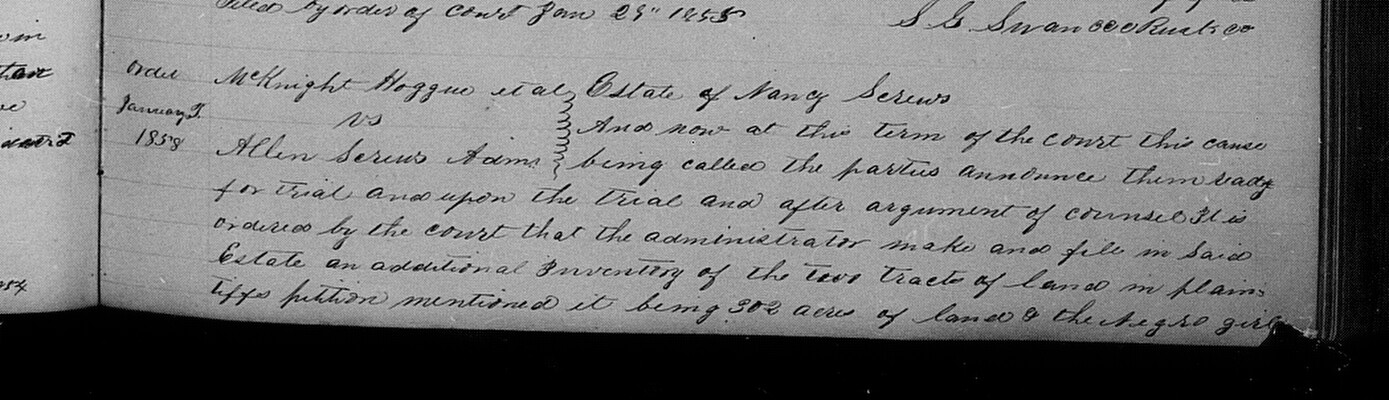 Filed by order of Court Jan 29" 1858
S. G. Swan CCC Rusk co
Order
January T.
1858
McKnight Hoggue et al
vs
Allen Screws Admr
Estate of Nancy Screws
And now at this term of the court this cause
being called the parties announce them ready
for trial and upon the trial and after argument of counsel It is
ordered by the court that the administrator make and file in said
Estate an additional Inventory of the two tracts of land in plain-
tiffs petition mentioned it being 302 acres of land & the Negro girl